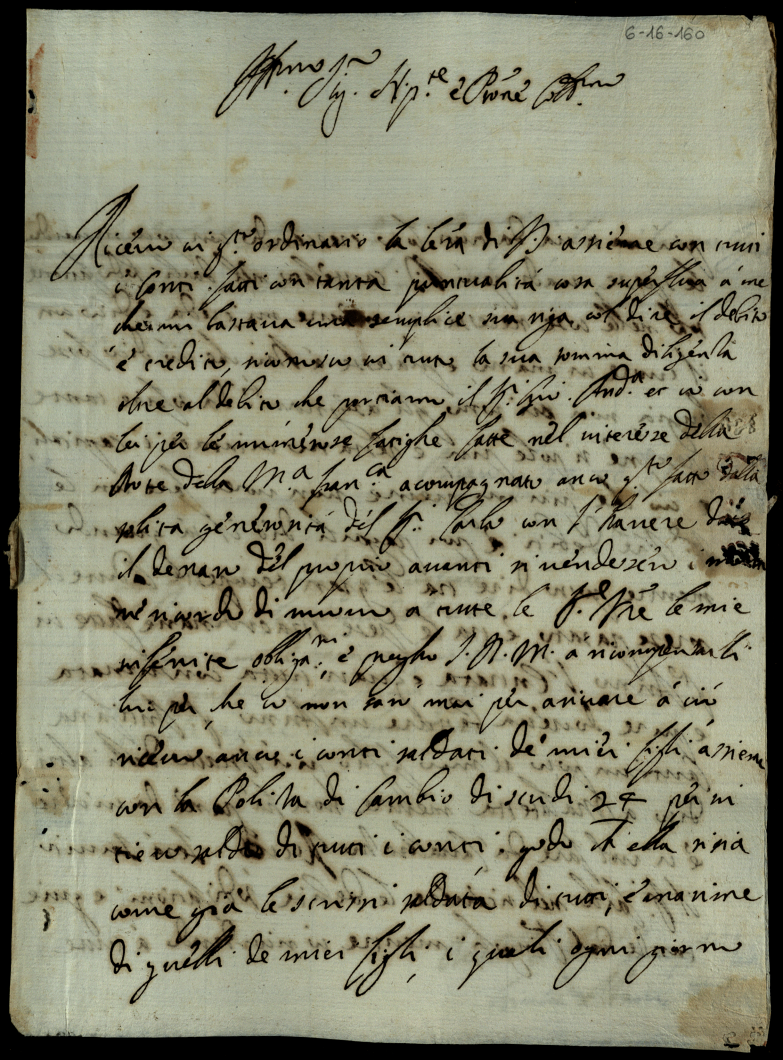 6-16-160
Sig.r Nip.te e Prone
Ricevo in q.to ordinario la lera di V.S. assieme con tutti
i Conti fatti con tanta pontualità cosa superflua à me
che mi bastava una semplice sua riga col dire il debito
è credito, riconosco in tutto la sua somma diligenza
oltre al debito che portiamo il Sig. Gio. And.a et io con
lei per le numerose fatighe fatte nel interesse della
Dote della M.a Fran.ca acompagnato anco q.to fatto dalla
solita generosità del Sig. Carlo con l'havere
il denaro del proprio avanti si vendesero i
ne ricordo di nuovo a tutte le le mie
infinite obliga.ni è pregho S. D. M. a ricompensarlli
lui per che io non son mai per arivare à ciò
ricevo anco i conti saldati de miei figli assieme
con la Polisa di Cambio di scudi 24 per in
tiero saldo di tutti i conti. godo ch ella risia
come già le scrissi saldata di tutti, è anamime
di quelli de miei figli, i quali ogni giorno